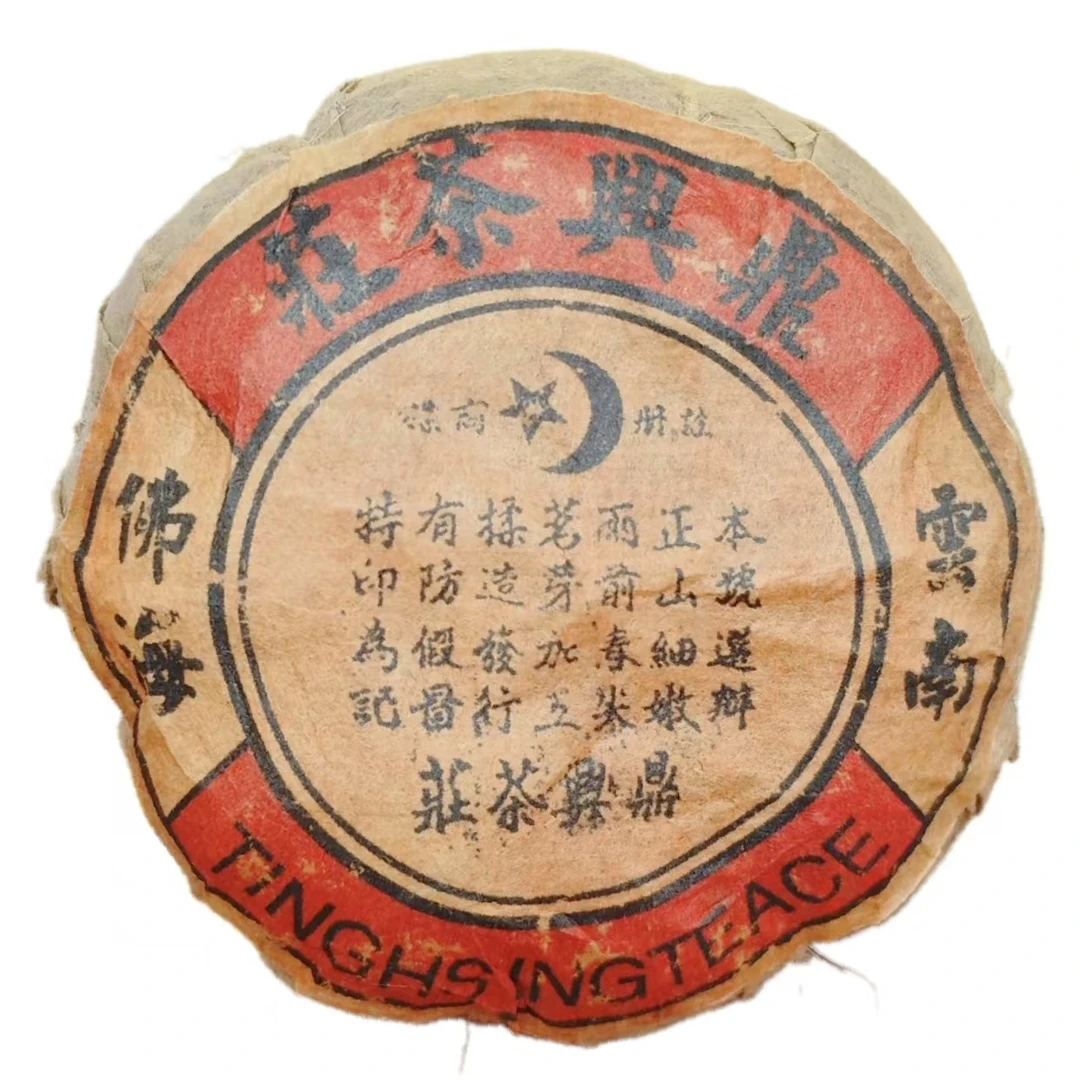 鼎興茶莊
雲南
佛海
註册商標
本號選辦
正山細嫩
雨前春尖
茗芽加工
揉造發行
有防假冒
特印為記
鼎興茶莊
TINGHSINGTEACE